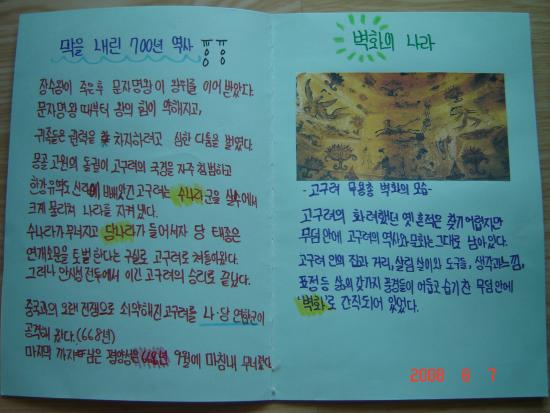 막을 내린 700년 역사 ㅠㅠ
장수왕이 죽은후 문자명왕이 왕위를 이어 받았다.
문자명왕 때부터 왕의 힘이 약해지고,
귀족들은 권력을 차지하려고 심한 다툼을 벌였다.
몽골 고원의 돌궐이 고구려의 국경을 자주 침범하고
한강유역도 신라에 빼앗긴 고구려는 수나라군을 살수에서
크게 물리쳐 나라를 지켜냈다.
수나라가 무너지고 당나라가 들어서자 당 태종은
연개소문을 토벌 한다는 구실로 고구려로 쳐들어왔다.
그러나 안시성 전투에서 이긴 고구려의 승리로 끝났다.
중국과의 오랜 전쟁으로 쇠약해진 고구려를 나·당 연합군이
공격해 왔다.(668년)
마지막 까지 평양성은 668년 9월에 마침내 무너졌다
벽화의 나라
-고구려 무용총 벽화의 모습-
고구려의 화려했던 옛 흔적은 찾기 어렵지만
무덤 안에 고구려의 역사와 문화는 그대로 남아 있다.
고구려 인의 집과 거리, 살림살이와 도구들, 생각과 느낌,
표정 등 삶의 갖가지 풍경들이 어둡고 습기 찬 무덤 안에
'벽화'로 간직되어 있었다.
2008 6 7